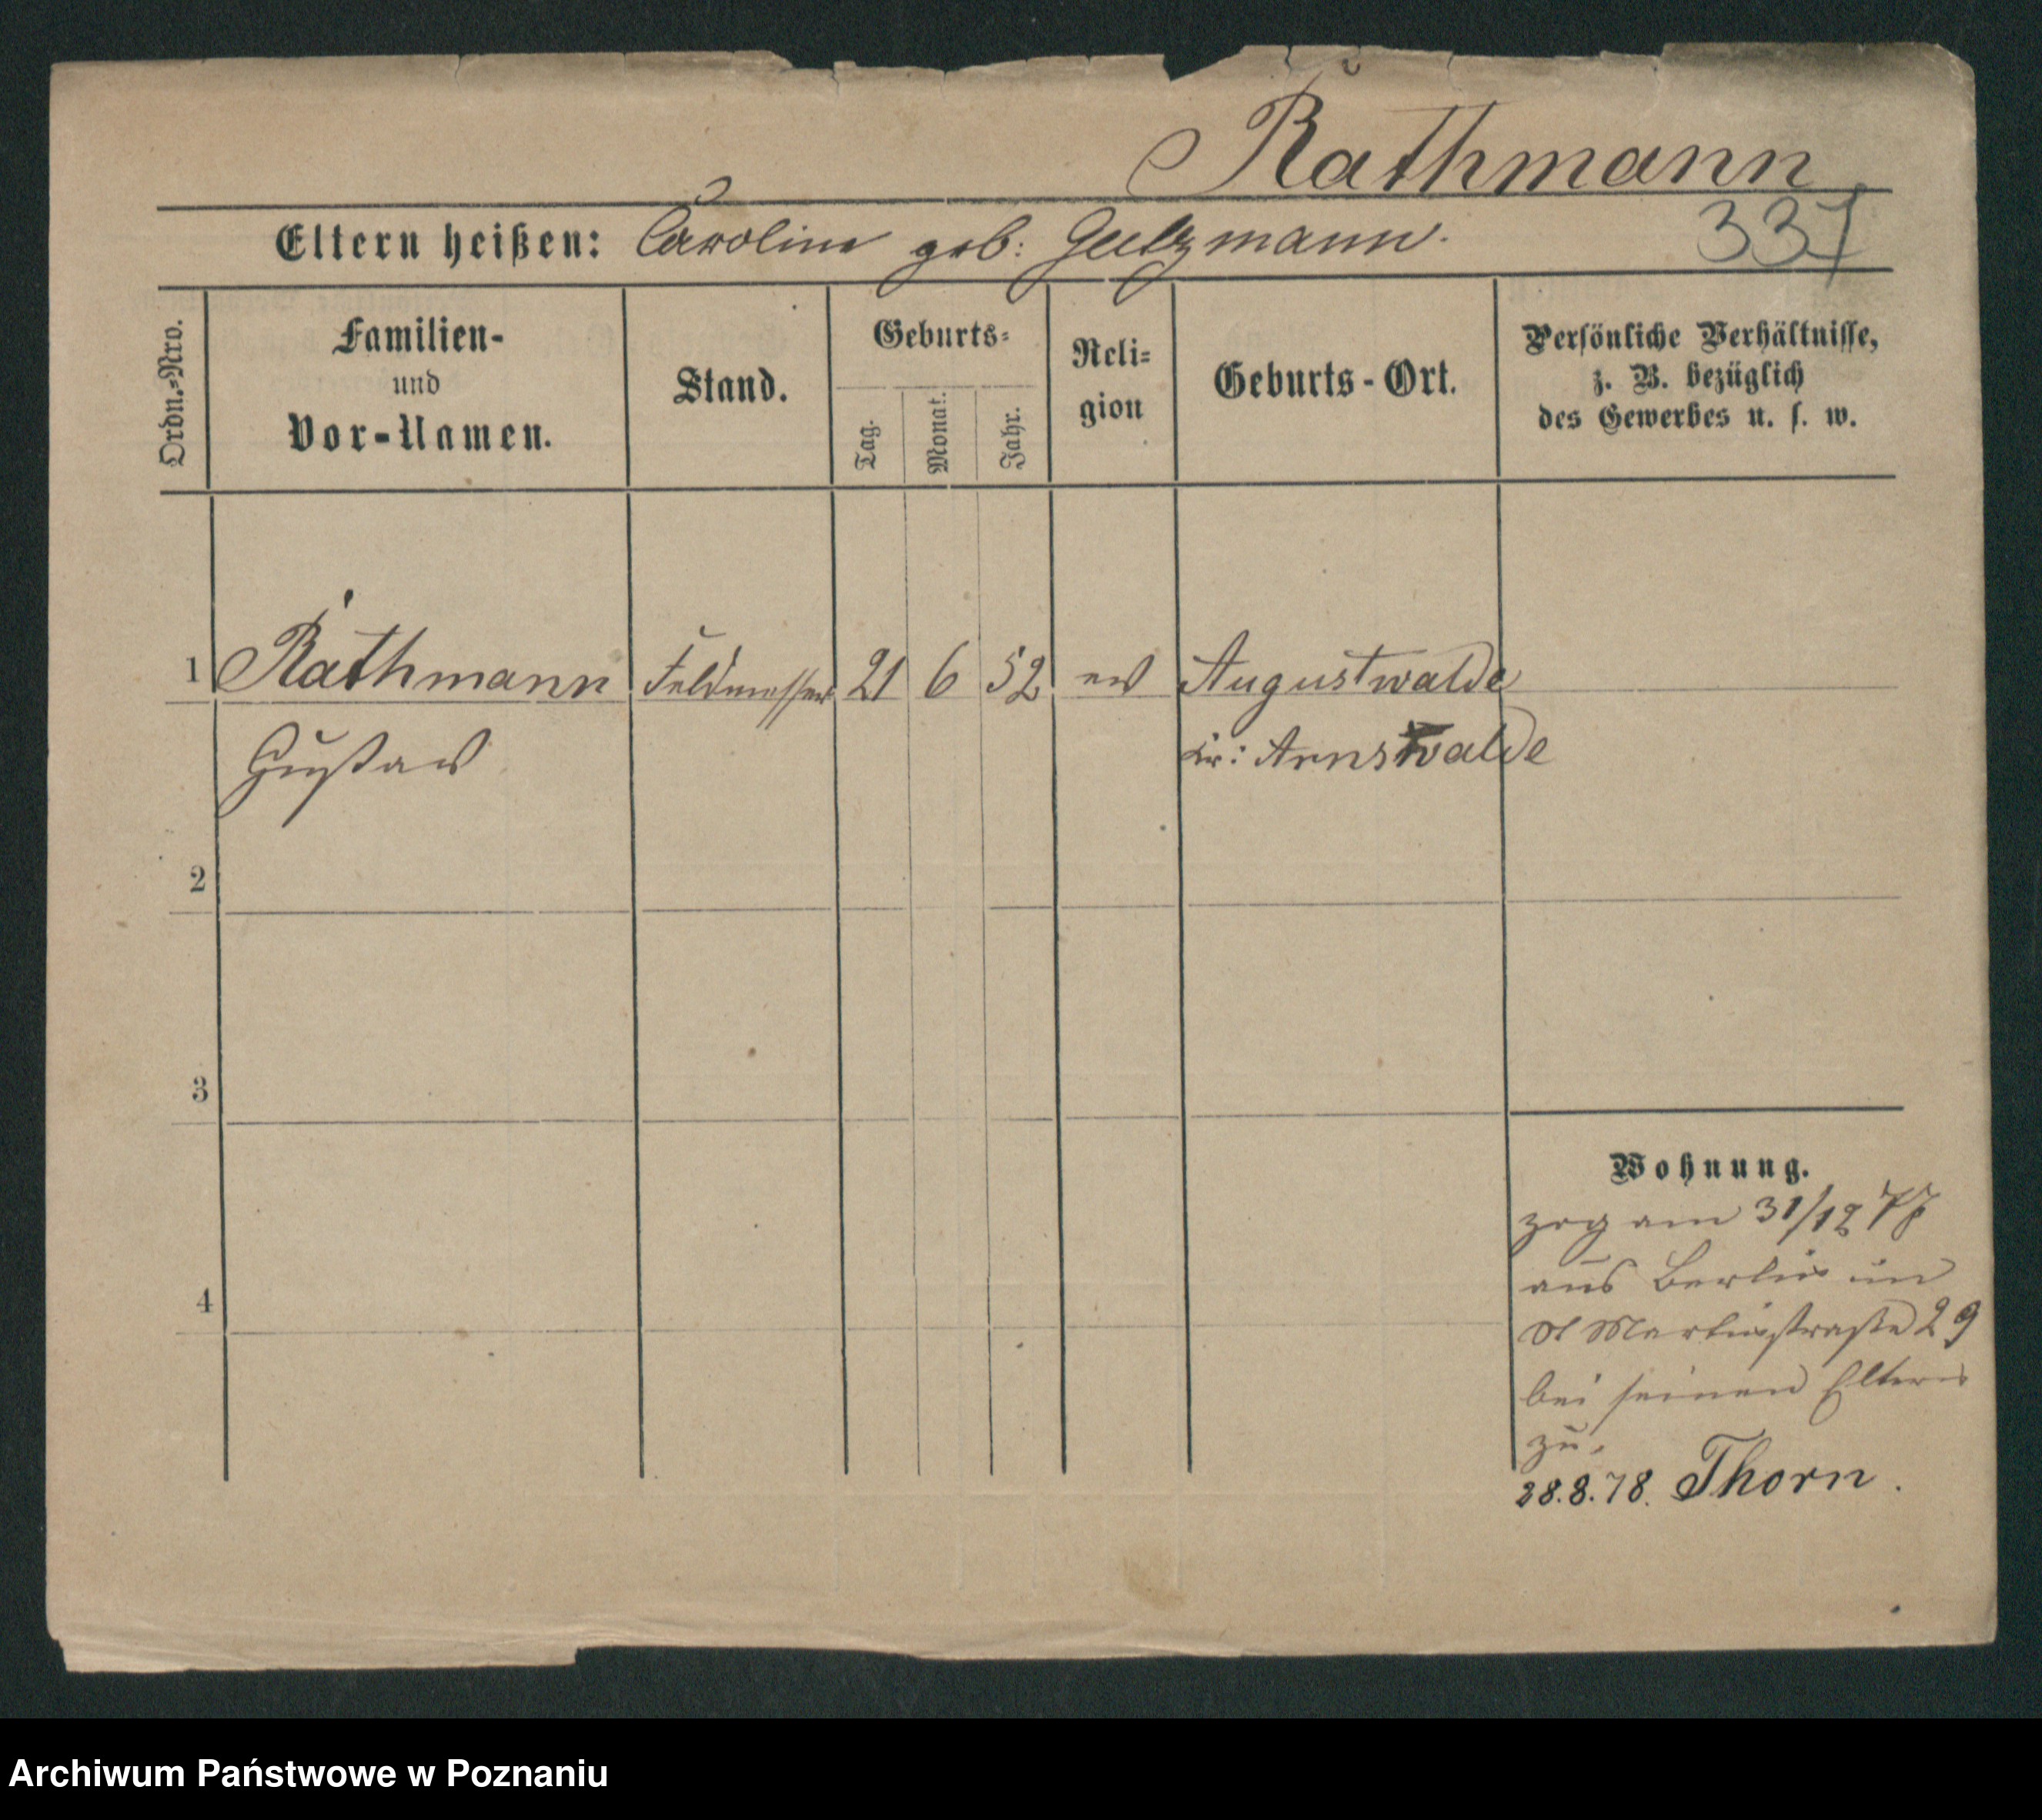 Rathmann
337
Eltern heißen: Caroline geb: Gutzmann.
Ordn.-Nro.
Familien-
und
Vor-Namen.
Stand.
Geburts-
Tag.
Monat.
Jahr.
Reli-
gion
Geburts-Ort.
Persönliche Verhältnisse,
z. B. bezüglich
des Gewerbes u. s. w.
1 Rathmann Feldmesser 21 6 52 ev Augustwalde
Gustav Kr: Arnswalde
2
3
4
Wohnung.
zog am 31/12 77
aus Berlin in
St Martinstraße 29
bei seinen Eltern
zu.
28.8.78. Thorn.
Archiwum Państwowe w Poznaniu